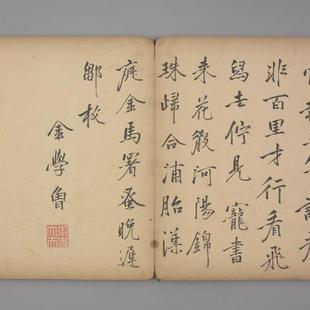 非百里才行看飛
舄去佇見寵書
来花發河陽錦
珠歸合浦胎漢
庭金馬署蚤晚遲
鄒枚
金學曾